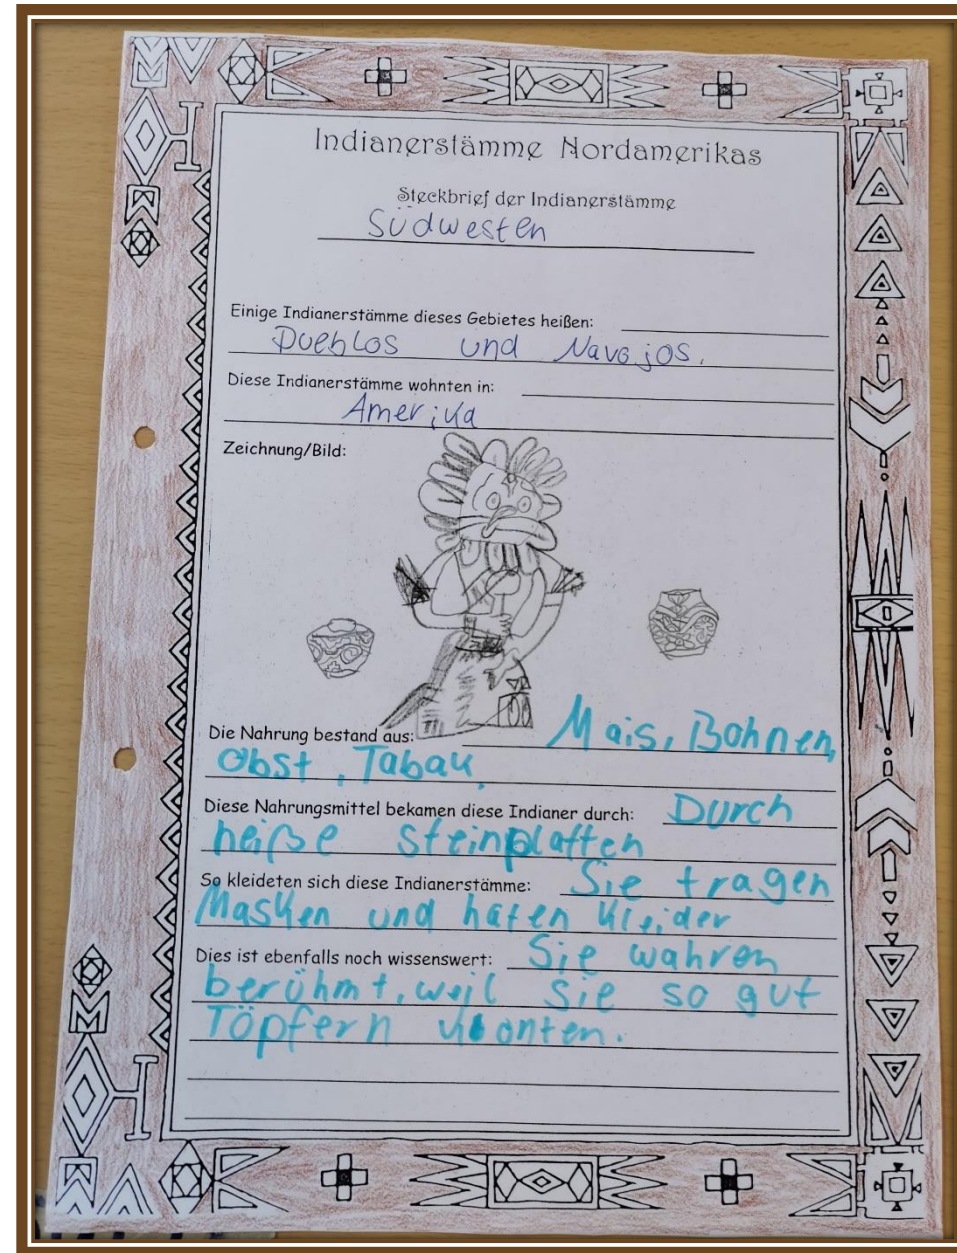 Indianerstämme Nordamerikas
Steckbrief der Indianerstämme
Südwesten
Einige Indianerstämme dieses Gebietes heißen:
Pueblos und Navajos.
Diese Indianerstämme wohnten in:
Amerika
Zeichnung/Bild:
Die Nahrung bestand aus: Mais, Bohnen,
Obst, Tabak
Diese Nahrungsmittel bekamen diese Indianer durch: Durch
heiße Steinplatten
So kleideten sich diese Indianerstämme: Sie tragen
Masken und haten Kleider
Dies ist ebenfalls noch wissenswert: Sie wahren
berühmt, weil sie so gut
Töpfern konten.